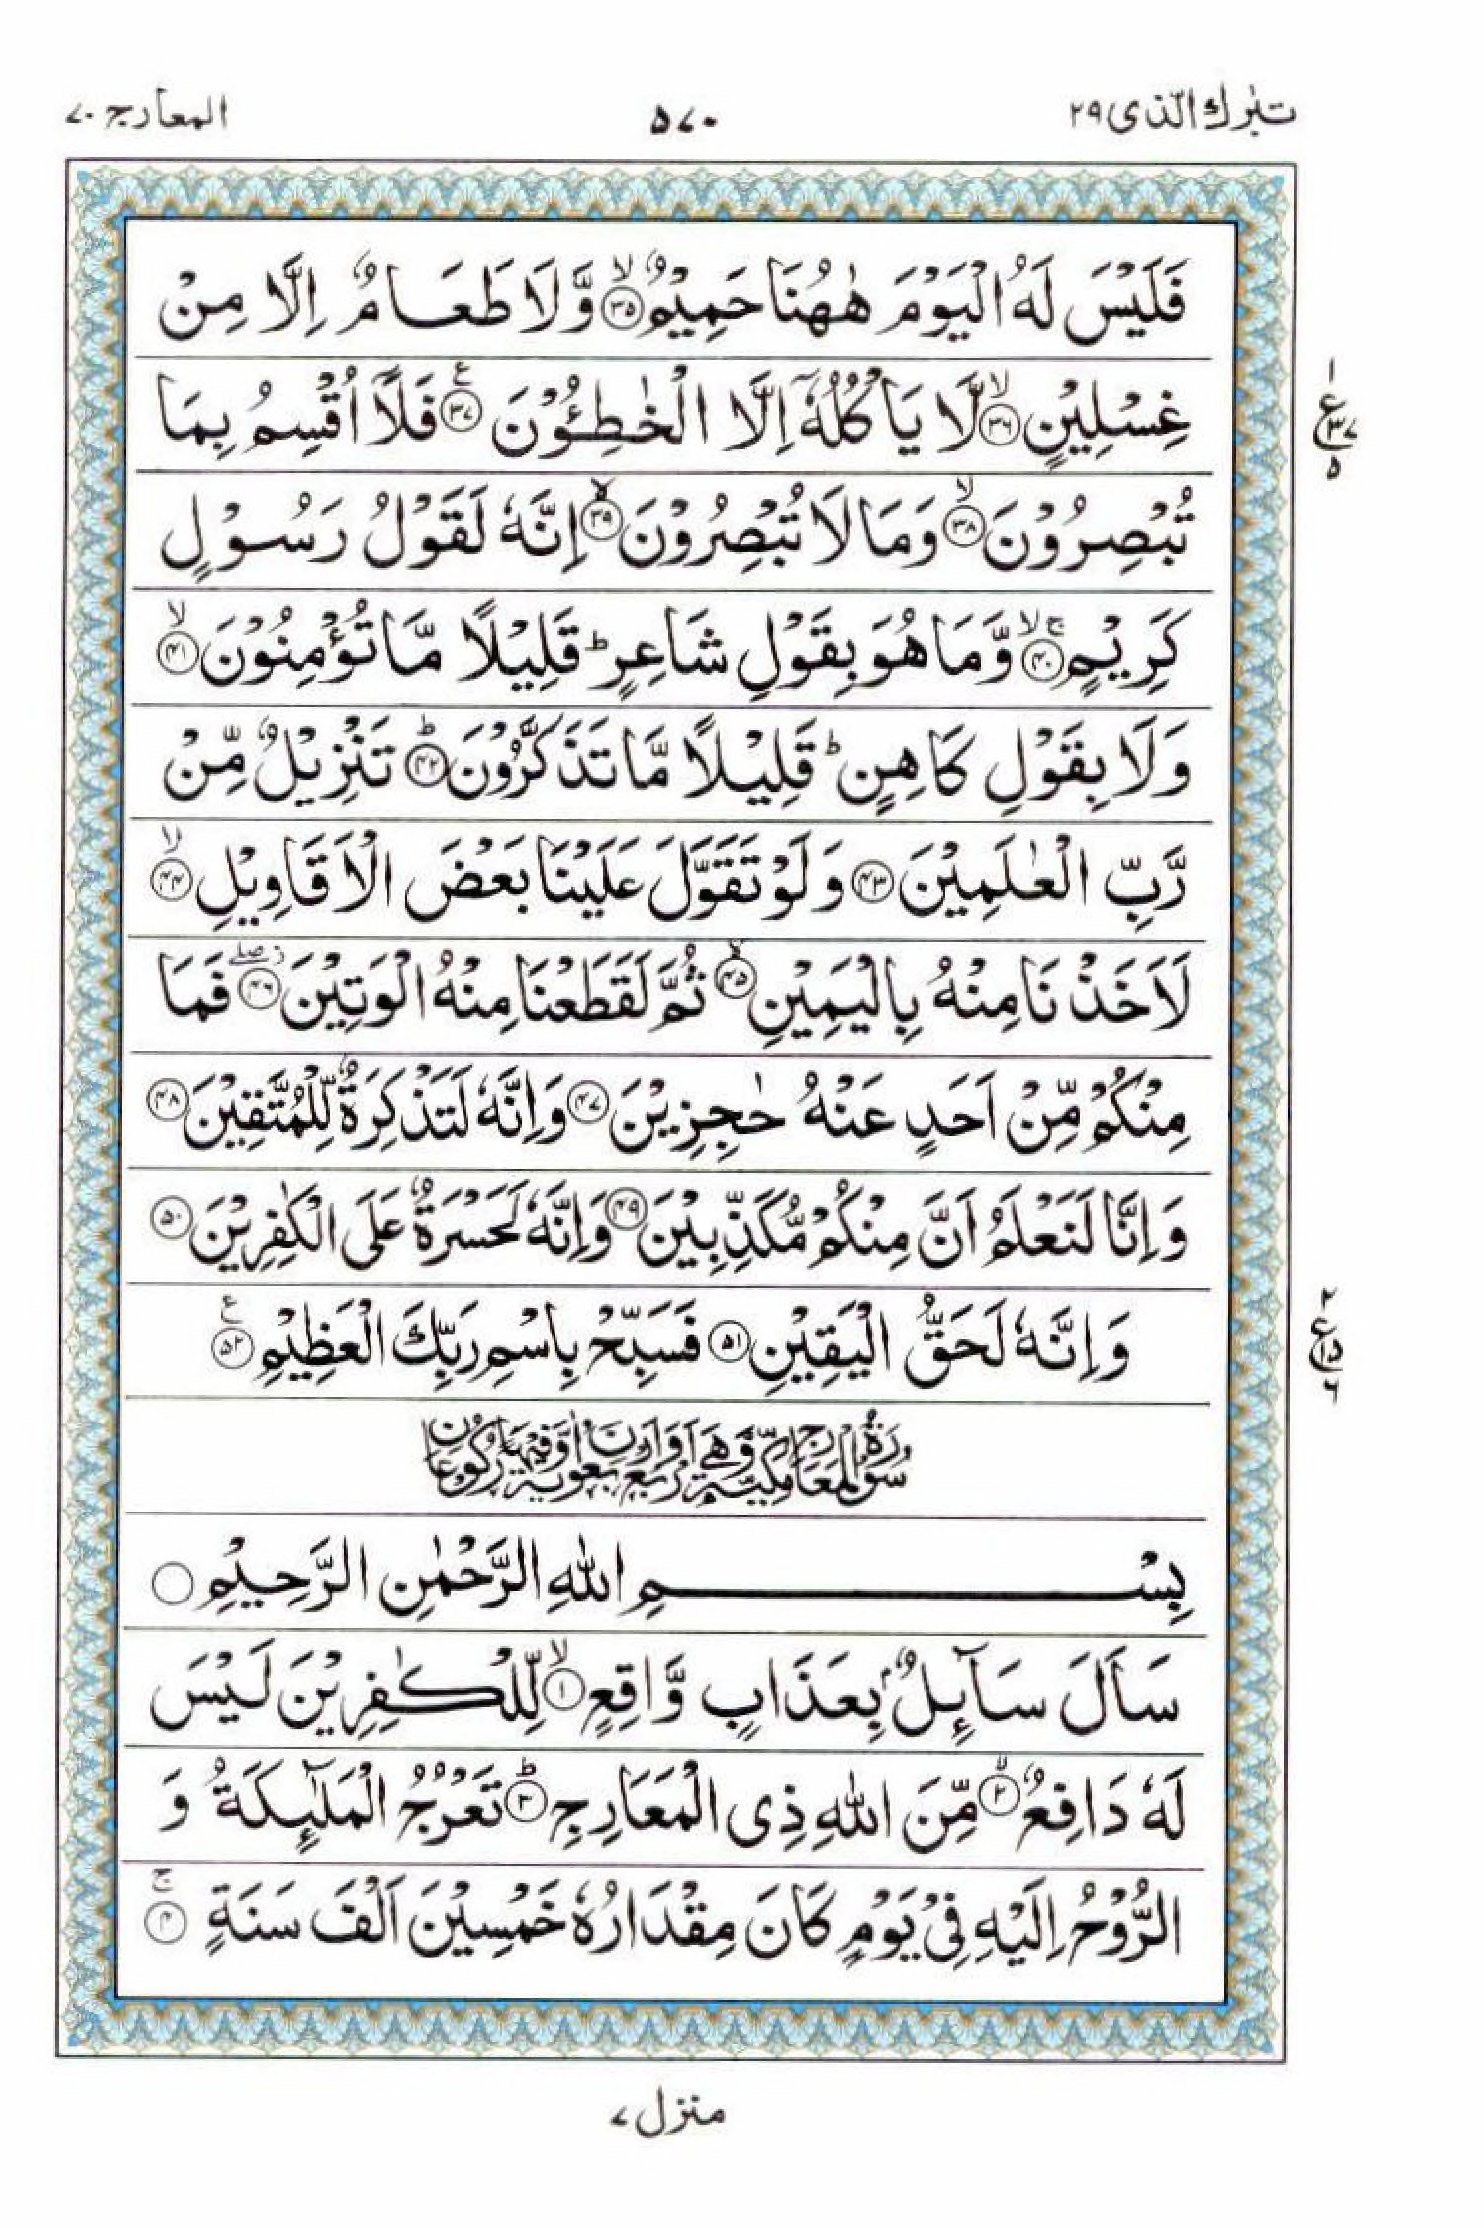 تبٰرك الّذى ٢٩
٥٧٠
المعارج ٧٠
فَلَيْسَ لَهُ الْيَوْمَ هٰهُنَا حَمِيْمٌ ۙ﴿۳۵﴾ وَّلَا طَعَامٌ اِلَّا مِنْ
غِسْلِيْنٍ ۙ﴿۳۶﴾ لَّا يَاْكُلُهٗۤ اِلَّا الْخٰطِـُٔوْنَ ﴿۳۷﴾ع فَلَاۤ اُقْسِمُ بِمَا
١
ع
٣٧
٥
تُبْصِرُوْنَ ۙ﴿۳۸﴾ وَمَا لَا تُبْصِرُوْنَ ۙ﴿۳۹﴾ اِنَّهٗ لَقَوْلُ رَسُوْلٍ
كَرِيْمٍ ۚۙ﴿۴۰﴾ وَّمَا هُوَ بِقَوْلِ شَاعِرٍ ؕ قَلِيْلًا مَّا تُؤْمِنُوْنَ ۙ﴿۴۱﴾
وَلَا بِقَوْلِ كَاهِنٍ ؕ قَلِيْلًا مَّا تَذَكَّرُوْنَ ؕ﴿۴۲﴾ تَنْزِيْلٌ مِّنْ
رَّبِّ الْعٰلَمِيْنَ ﴿۴۳﴾ وَلَوْ تَقَوَّلَ عَلَيْنَا بَعْضَ الْاَقَاوِيْلِ ۙ﴿۴۴﴾
لَاَخَذْنَا مِنْهُ بِالْيَمِيْنِ ۙ﴿۴۵﴾ ثُمَّ لَقَطَعْنَا مِنْهُ الْوَتِيْنَ ۖز﴿۴۶﴾ فَمَا
مِنْكُمْ مِّنْ اَحَدٍ عَنْهُ حٰجِزِيْنَ ﴿۴۷﴾ وَاِنَّهٗ لَتَذْكِرَةٌ لِّلْمُتَّقِيْنَ ﴿۴۸﴾
وَاِنَّا لَنَعْلَمُ اَنَّ مِنْكُمْ مُّكَذِّبِيْنَ ﴿۴۹﴾ وَاِنَّهٗ لَحَسْرَةٌ عَلَى الْكٰفِرِيْنَ ﴿۵۰﴾
وَاِنَّهٗ لَحَقُّ الْيَقِيْنِ ﴿۵۱﴾ فَسَبِّحْ بِاسْمِ رَبِّكَ الْعَظِيْمِ ﴿۵۲﴾ع
٢
ع
١٥
٦
سُوْرَةُ الْمَعَارِجِ مَكِّيَّةٌ وَّهِيَ اَرْبَعٌ وَّاَرْبَعُوْنَ اٰيَةً وَّفِيْهَا رُكُوْعَانِ
بِسْمِ اللّٰهِ الرَّحْمٰنِ الرَّحِيْمِ
سَاَلَ سَآئِلٌۢ بِعَذَابٍ وَّاقِعٍ ۙ﴿۱﴾ لِّلْكٰفِرِيْنَ لَيْسَ
لَهٗ دَافِعٌ ۙ﴿۲﴾ مِّنَ اللّٰهِ ذِى الْمَعَارِجِ ؕ﴿۳﴾ تَعْرُجُ الْمَلٰٓئِكَةُ وَ
الرُّوْحُ اِلَيْهِ فِيْ يَوْمٍ كَانَ مِقْدَارُهٗ خَمْسِيْنَ اَلْفَ سَنَةٍ ۚ﴿۴﴾
منزل ٧